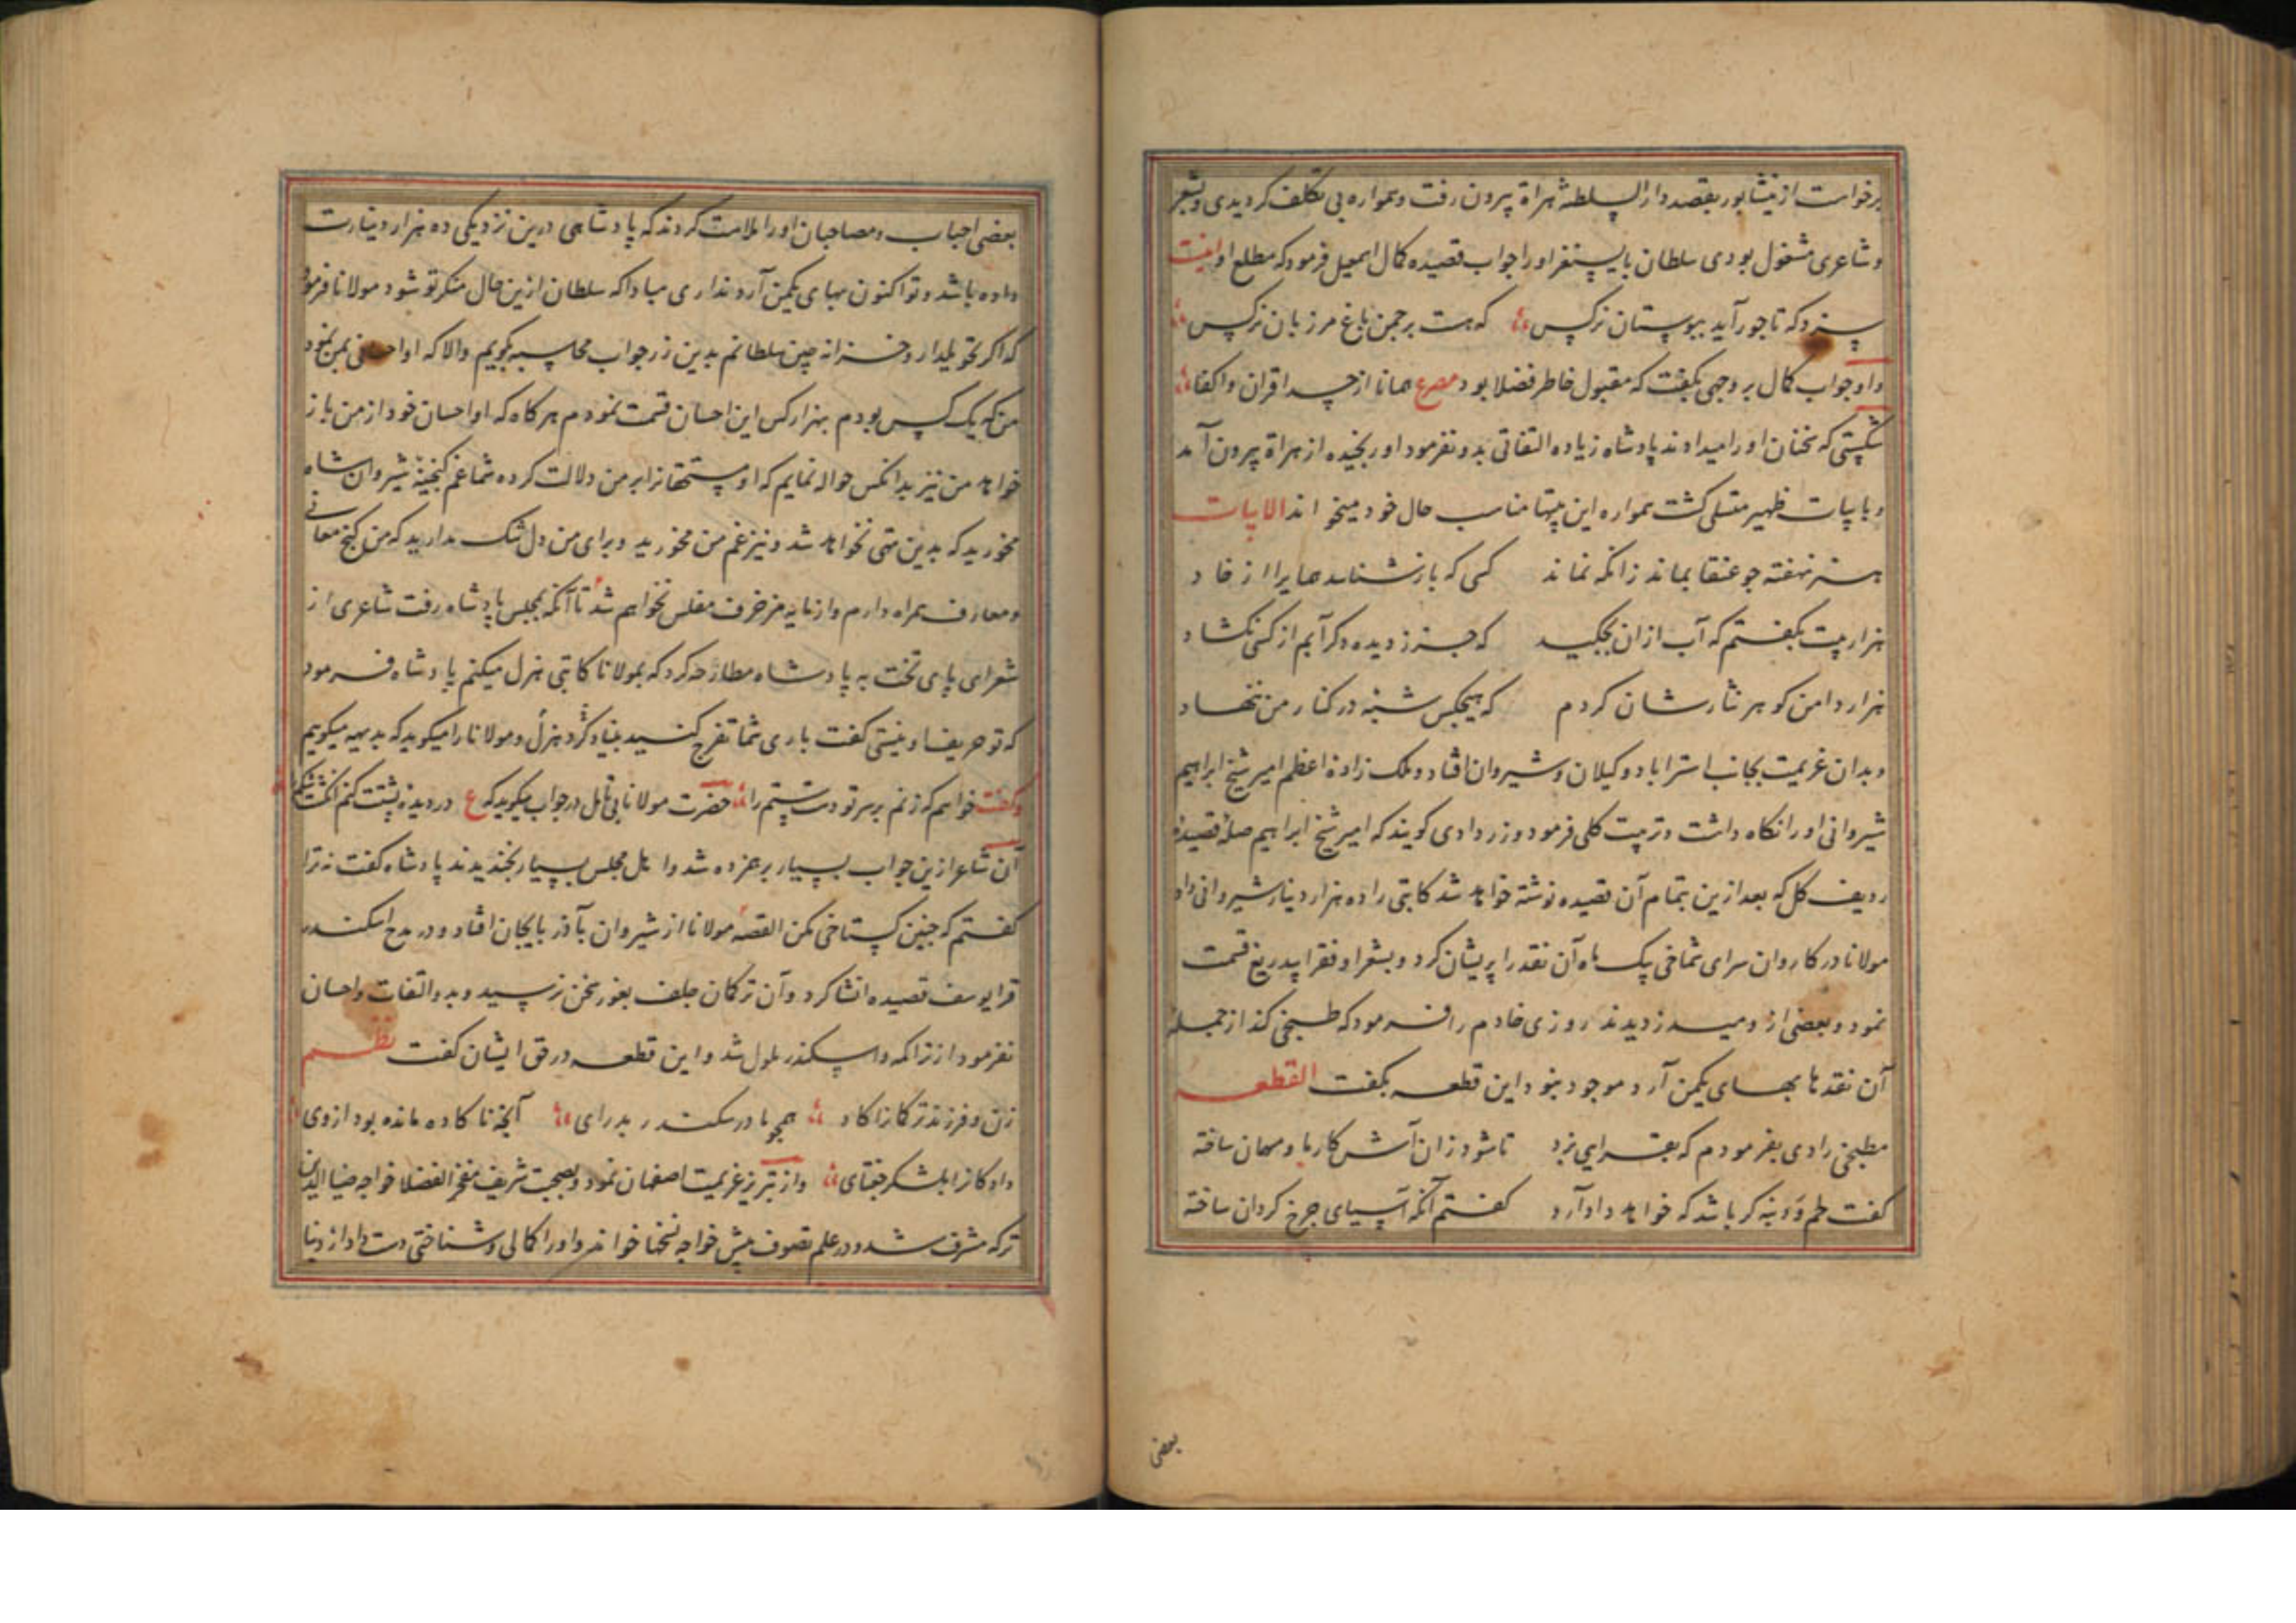 برخواست از نیشابور بقصد دار السلطنه هراة بیرون رفت و همواره بی تکلف کردیدی و بشعر
و شاعری مشغول بودی سلطان بایسنغر او را جواب قصیده کمال اسمعیل فرمود که مطلع او اینست
سزد که تاجور آید ببوستان نرکس که هست بر چمن باغ مرزبان نرکس
و او جواب کمال بر وجهی بکفت که مقبول خاطر فضلا بود مصرع همانا از حسد اقران و اکفا
شکستی که سخنان او را میدادند پادشاه زیاده التفاتی بدو نفرمود او رنجیده از هراة بیرون آمد
و بابیات ظهیر متسلی کشت همواره این بیتها مناسب حال خود میخواند الابیات
هنر نهفته چو عنقا بماند زانکه نماند کسی که باز شناسد همایرا از خاد
هزار بیت بکفتم که آب ازان بچکید که جز ز دیده دکر آبم از کسی نکشاد
هزار دامن کوهر نثارشان کردم که هیچکس شبه در کنار من ننهاد
و بدان عزیمت بجانب استراباد و کیلان و شیروان افتاد و ملک زادۀ اعظم امیر شیخ ابراهیم
شیروانی او را نکاه داشت و تربیت کلی فرمود و زر دادی کویند که امیر شیخ ابراهیم صلۀ قصیدۀ
ردیف کل که بعد ازین بتمام آن قصیده نوشته خواهد شد کاتبی را ده هزار دینار شیروانی داد
مولانا در کاروان سرای شماخی یک ماه آن نقد را پریشان کرد و بشعرا و فقرا بیدریغ قسمت
نمود و بعضی از و میدزدیدند روزی خادم را فرمود که طبخی کند از جمله
آن نقدها بهای یکمن آرد موجود نبود این قطعه بکفت القطعه
مطبخی را دی بفرمودم که بغرایی بزد تا شود زان آش کار ما و مهمان ساخته
کفت لحم و دنبه کر باشد که خواهد داد آرد کفتم آنکه آسیای چرخ کردان ساخته
بعضی
بعضی احباب و مصاحبان او را ملامت کردند که پادشاهی درین نزدیکی ده هزار دینارت
داده باشد و تو اکنون بهای یکمن آرد نداری مبادا که سلطان ازین حال منکر تو شود مولانا فرمود
که اکر تحویلدار و خزانه چین سلطانم بدین زر جواب محاسبه بکویم والا که او احسانی بمن نمود
من که یک کس بودم بهزار کس این احسان قسمت نمودم هر کاه که او احسان خود از من باز
خواهد من نیز بدانکس حواله نمایم که او مستحقانرا بر من دلالت کرده شما غم کنجینۀ شیروان شاه
مخورید که بدین تهی نخواهد شد و نیز غم من مخورید و برای من دل تنک مدارید که من کنج معانی
و معارف همراه دارم و ازمایه مزخرف مفلس نخواهم شد تا آنکه بمجلس پادشاه رفت شاعری از
شعرای پای تخت به پادشاه مطارحه کرد که بمولانا کاتبی هزل میکنم پادشاه فرمود
که تو حریف او نیستی کفت باری شما تفرج کنید بنیاد کرد هزل و مولانا را میکوید که بدیهه میکویم
و کفت خواهم که زنم بر سر تو دست ستم را حضرت مولانا بی تأمل در جواب میکوید که ع در دیده بستت کنم انکشت
آن شاعر ازین جواب بسیار برهم زده شد و اهل مجلس بسیار بخندیدند پادشاه کفت نه ترا
کفتم که چنین کستاخی مکن القصه مولانا از شیروان بآذربایجان افتاد و در مدح اسکندر
قرایوسف قصیده انشا کرد و آن ترکمان جلف بغور سخن نرسید و بدو التفات و احسان
نفرمود از ترا که داسکندر ملول شد و این قطعه در حق ایشان کفت نظم
زن و فرزند ترکانرا کاد همچو مادر سکندر بد رای آنچه ناکاده مانده بود از وی
داد کانرا بلشکر جغتای و از تبریز عزیمت اصفهان نمود و بصحبت شریف مفخر الفضلا خواجه ضیا الدین
ترکه مشرف شد و در علم تصوف پیش خواجه نسخها خواند و او را کمالی و شناختی دست داد از دنیا